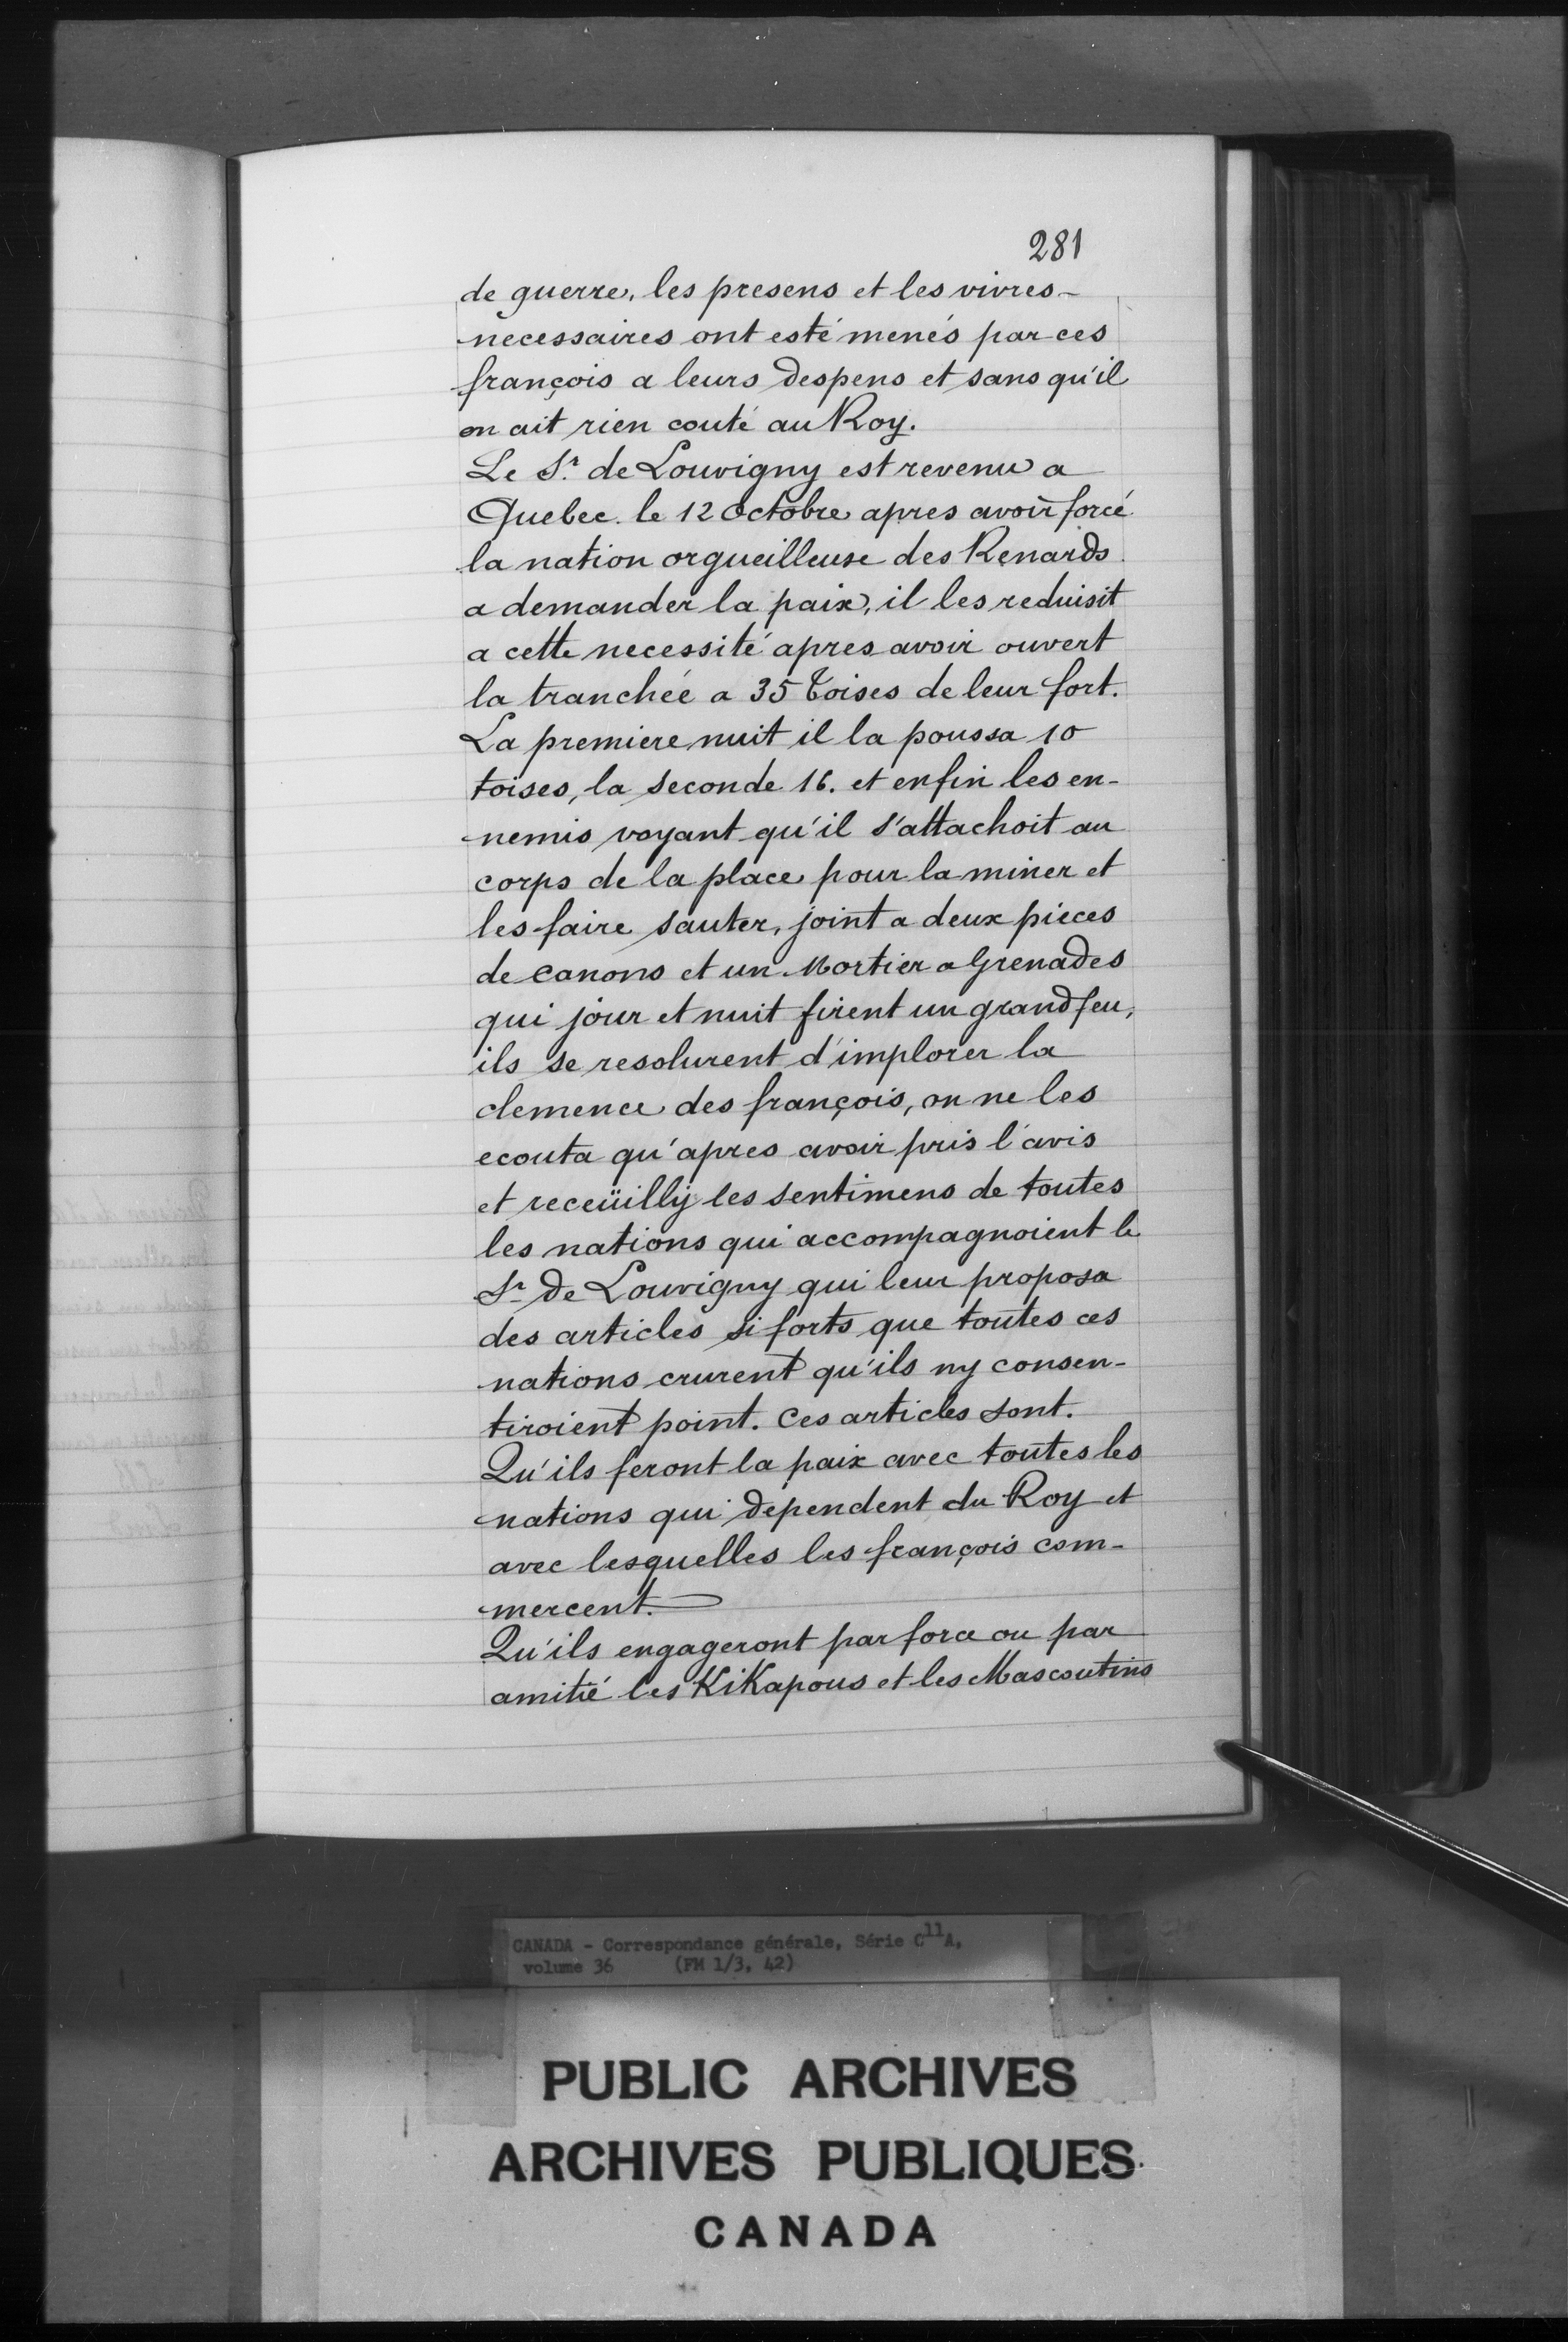 281
de guerre, les presens et les vivres-
necessaires ont esté menés par ces
françois a leurs despens et sans qu'il
en ait rien couté au Roy.
Le Sr. de Louvigny est revenu a
Quebec. le 12 Octobre apres avoir forcé
la nation orgueilleuse des Renards
a demander la paix, il les reduisit
a cette necessité apres avoir ouvert
la tranchée a 35 toises de leur fort.
La premiere nuit il la poussa 10
toises, la seconde 16. et enfin les en-
nemis voyant qu'il s'attachoit au
corps de la place pour la miner et
les faire sauter, joint a deux pieces
de canons et un Mortier a Grenades
qui jour et nuit firent un grand feu,
ils se resolurent d'implorer la
clemence des françois, on ne les
ecouta qu'apres avoir pris l'avis
et receüilly les sentimens de toutes
les nations qui accompagnoient le
Sr de Louvigny qui leur proposa
des articles si forts que toutes ces
nations crurent qu'ils ny consen-
tiroient point. Ces articles sont.
Qu'ils feront la paix avec toutes les
nations qui dependent du Roy et
avec lesquelles les françois com-
mercent.
Qu'ils engageront par force ou par
amitié les KiKapous et les Mascoutins
CANADA - Correspondance générale, Série C11A,
volume 36 (FM 1/3, 42)
PUBLIC ARCHIVES
ARCHIVES PUBLIQUES
CANADA